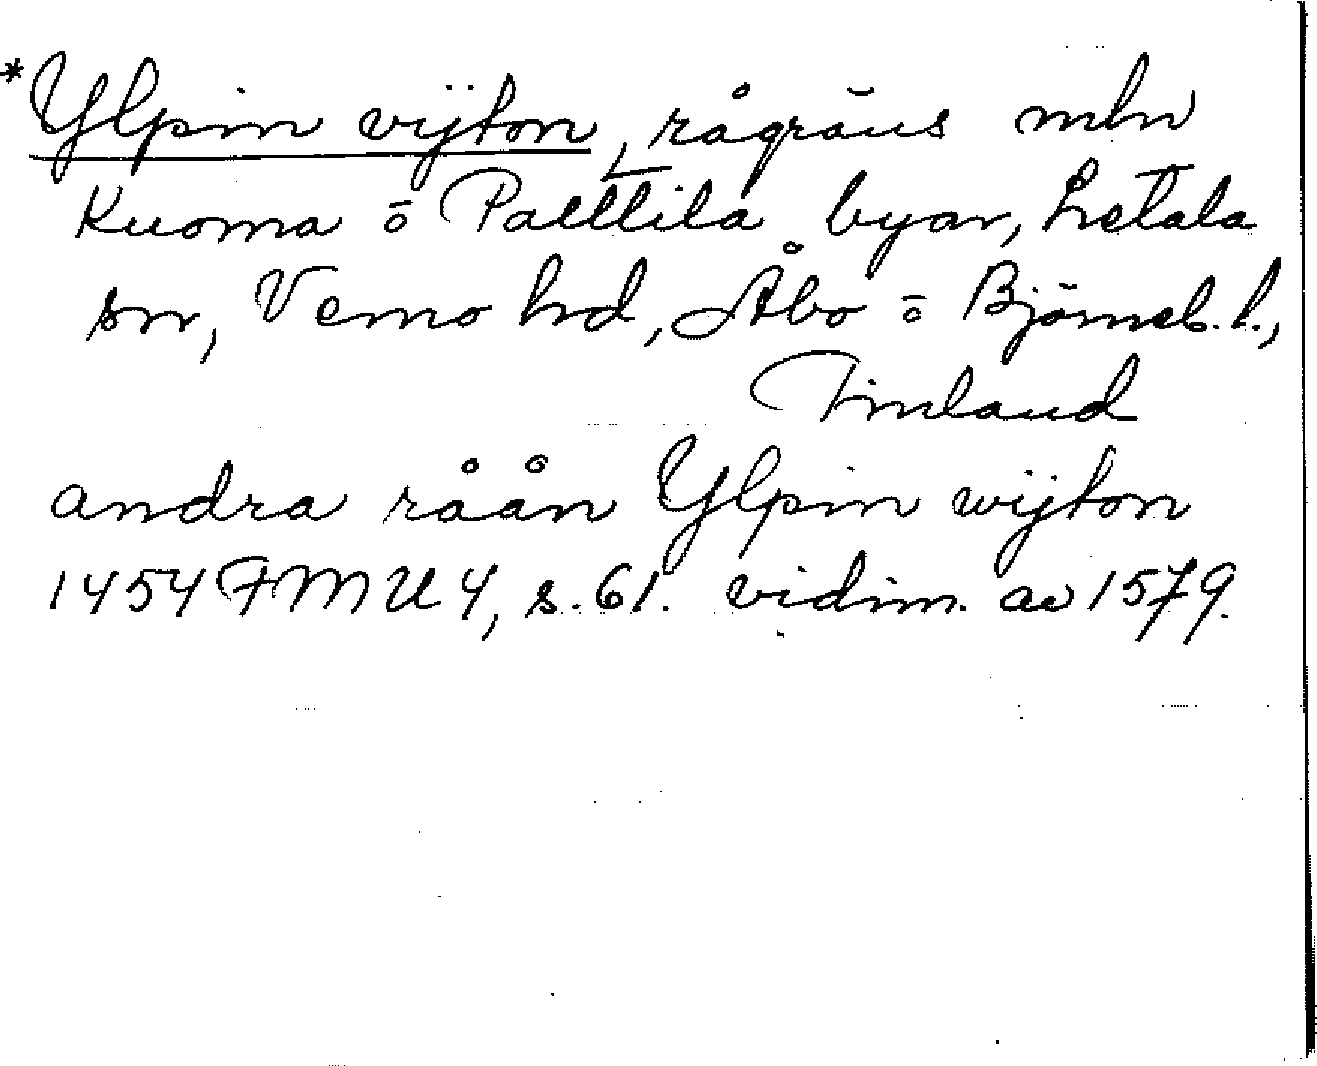 *Ylpin vijton, rågräns mln
Kuoma ō Palttila byar, Letala
sn, Vemo hd, Åbo ō Björneb. l.,
Finland
andra råån Ylpin wijton
1454 FMU 4, s. 61. vidim. av 1579.